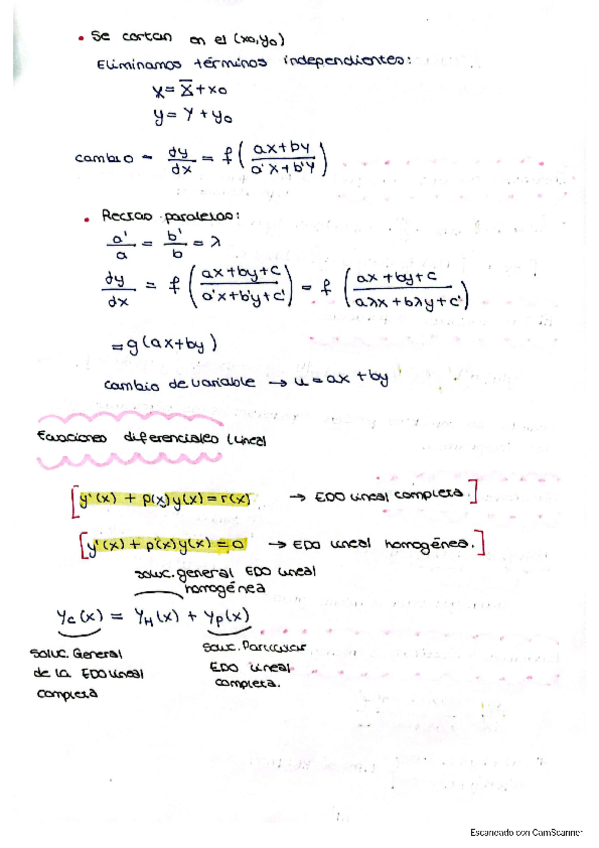 • Se cortan en el (x0,y0)
Eliminamos términos independientes:
x = X̄ + x0
y = Y + y0
cambio - dy/dx = f(ax+by / a'x+b'y)
• Rectas paralelas:
a'/a = b'/b = λ
dy/dx = f(ax+by+c / a'x+b'y+c') = f(ax+by+c / aλx+bλy+c')
= g(ax+by)
cambio de variable → u = ax+by
Ecuaciones diferenciales lineal
[y'(x) + p(x)y(x) = r(x) → EDO lineal completa.]
[y'(x) + p(x)y(x) = 0 → EDO lineal homogénea.]
soluc. general EDO lineal
homogénea
yc(x) = yH(x) + yp(x)
soluc. General
de la EDO lineal
completa
soluc. Particular
EDO lineal
completa.
Escaneado con CamScanner